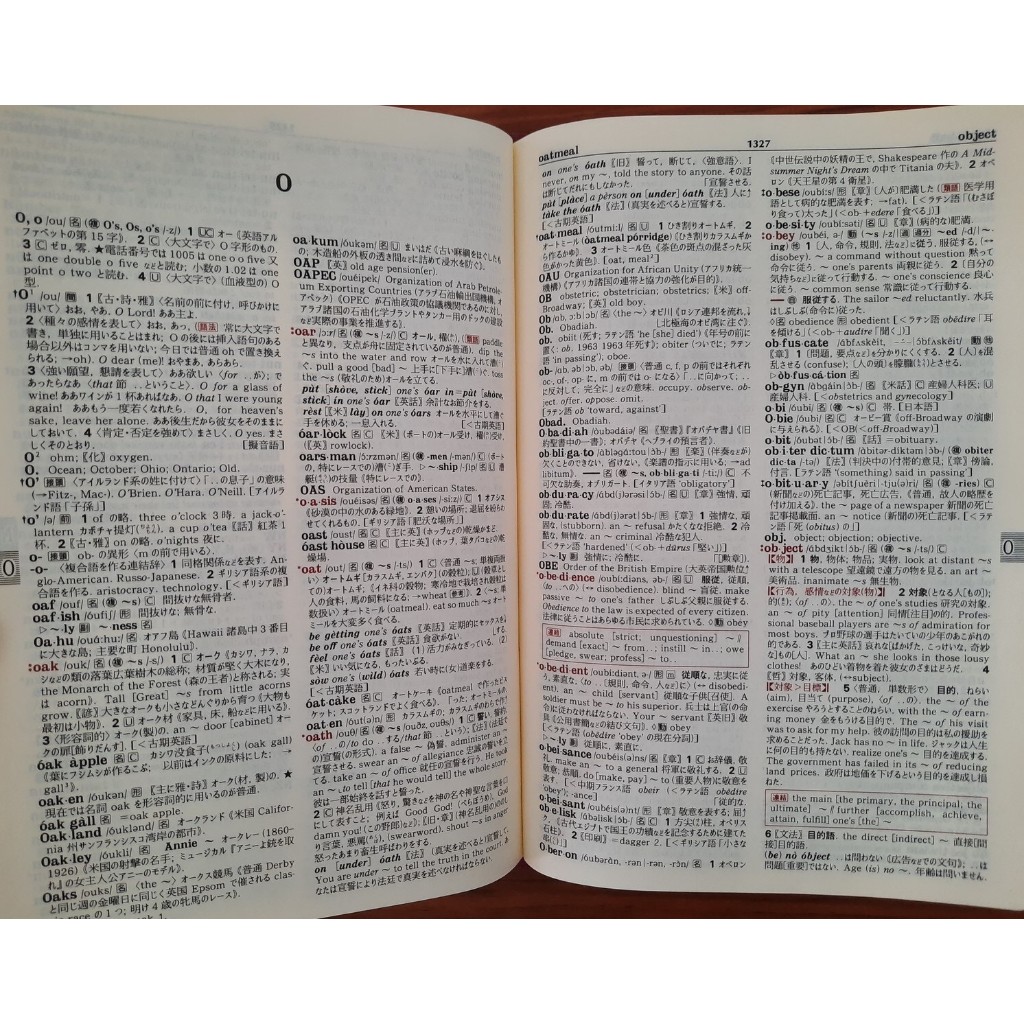 O
O, o /ou/ 名 (複 O's, Os, o's /-z/) 1 UC オー《英語アル
ファベットの第 15 字》. 2 C 〈大文字で〉O 字形のもの.
3 C ゼロ, 零. ★電話番号では 1005 は one o o five 又
は one double o five などと読む; 小数の 1.02 は one
point o two と読む. 4 U 〈大文字で〉(血液型の) O
型.
O¹ /ou/ 間 1 《古・詩・雅》〈名前の前に付け, 呼びかけに
用いて〉おお, やあ. O Lord! ああ主よ.
2 〈種々の感情を表して〉おお, あっ, (語法 常に大文字で
書き, 単独に用いることはまれ; O の後には挿入語句のある
場合以外はコンマを用いない; 今日では普通 oh で置き換え
られる; →oh). O dear (me)! おやまあ, あらあら.
3 〈強い願望, 懇請を表して〉ああ欲しい〈for ..が〉; で
あったらなあ〈that 節 ..ということ〉. O for a glass of
wine! ああワインが 1 杯あればなあ. O that I were young
again! ああもう一度若くなれたら. O, for heaven's
sake, leave her alone. ああ後生だから彼女をそのままに
しておいて. 4 〈肯定・否定を強めて〉まさしく. O yes. まさ
しくそのとおり. [擬音語]
O² ohm; 《化》oxygen.
O. Ocean; October; Ohio; Ontario; Old.
O' 接頭 〈アイルランド系の姓に付けて〉「..の息子」の意味
(→Fitz-, Mac-). O'Brien. O'Hara. O'Neill. [アイルラ
ンド語「子孫」]
o' /ə/ 前 1 of の略. three o'clock 3 時. a jack-o'-
lantern カボチャ提灯. a cup o'tea 《話》紅茶 1
杯. 2 《古・雅》on の略. o'nights 夜に.
o- 接頭 ob- の異形 〈m の前で用いる〉.
-o- 〈複合語を作る連結辞〉1 同格関係などを表す. An-
glo-American. Russo-Japanese. 2 ギリシア語系の複
合語を作る. aristocracy. technology. [<ギリシア語]
oaf /ouf/ 名 (複 ~s) C 間抜けな無骨者.
oaf·ish /óufiʃ/ 形 間抜けな; 無骨な.
▷~·ly 副 ~·ness 名
Oa·hu /ouá:hu:/ 名 オアフ島《Hawaii 諸島中 3 番目
に大きな島; 主要な町 Honolulu》.
oak /ouk/ 名 (複 ~s /-s/) 1 C オーク《カシワ, ナラ, カ
シなどの類の落葉広葉樹木の総称; 材質が堅く大木になり,
the Monarch of the Forest (森の王者)と称される; 実
は acorn》. Tall [Great] ~s from little acorns
grow. 《諺》大きなオークも小さなどんぐりから育つ《大物も
最初は小物》. 2 U オーク材《家具, 床, 船などに用いる》.
3 〈形容詞的〉オーク(製)の. an ~ door [cabinet] オー
クの扉[飾りだんす]. [<古期英語]
óak àpple 名 C 没食子 (oak gall)
《葉にフシムシが作るこぶ; 以前はインクの原料にした;
gall³》.
oak·en /óukən/ 形 《主に雅・詩》オーク(材, 製)の. ★
現在では名詞 oak を形容詞的に用いるのが普通.
óak gàll 名 =oak apple.
Oak·land /óuklənd/ 名 オークランド《米国 Califor-
nia 州サンフランシスコ湾岸の都市》.
Oak·ley /óukli/ 名 Annie ~ オークレー (1860-
1926)《米国の射撃の名手; ミュージカル『アニーよ銃を取
れ』の女主人公アニーのモデル》.
Oaks /ouks/ 名 〈the ~〉オークス競馬《普通 Derby
と同じ週の金曜日に同じく英国 Epsom で催される clas-
sic race の 1 つ; 明け 4 歳の牝馬のレース》.
oa·kum /óukəm/ 名 U まいはだ《古い麻綱をほぐしたも
の; 木造船の外板の透き間などに詰めて浸水を防ぐ》.
OAP 《英》old age pension(er).
OAPEC /ouéipek/ Organization of Arab Petrole-
um Exporting Countries (アラブ石油輸出国機構, オ
アペック)《OPEC が石油政策の協議機関であるのに対し,
アラブ諸国の石油化学プラントやタンカー用のドックの建設
など実際の事業を推進する》.
oar /ɔ:r/ 名 (複 ~s /-z/) C オール, 櫂, (類語 paddle
と異なり, 支点が舟に固定されているのが普通). dip the
~s into the water and row オールを水に入れて漕ぐ/
ぐ. pull a good [bad] ~ 上手に[下手に]漕ぐ. toss
the ~s (敬礼のため)オールを立てる.
pùt [shòve, stìck] in one's óar=pùt [shòve,
stìck] in one's óar 《英話》余計なお節介をする.
rèst 《米》lày] on one's óars オールを水平にして漕ぐ
手を休める; 一息入れる. [<古期英語]
óar·lòck 名 C 《米》(ボートの)オール受け, 櫂受け,
(《英》rowlock).
oars·man /ɔ́:rzmən/ 名 (複 -men /-mən/) C (ボート
の, 特にレースでの)漕ぎ手. ▷~·ship /-ʃip/ 名 U 漕
艇(てい)の技量 (特にレースでの)
OAS Organization of American States.
o·a·sis /ouéisəs/ 名 (複 o·a·ses /-si:z/) C 1 オアシス
《砂漠の中の水のある緑地》. 2 憩いの場所; 退屈を紛らわ
せてくれるもの. [ギリシア語「肥沃な場所」]
oast /oust/ 名 C 《主に英》(ホップ, 麦などの)乾燥がま.
óast hòuse 名 C 《主に英》(ホップ, 葉タバコなどの)乾
燥場.
oat /out/ 名 (複 ~s /-ts/) C
be gètting one's óats 《英話》定期的にセックスをする.
be off one's óats 《英話》食欲がない.
fèel one's óats 《話》(1) 活力がみなぎっている. (2)
《米》いい気になる, もったいぶる.
sòw one's (wild) óats 若い時に(女)道楽をする.
[<古期英語]
óat·càke 名 C オートケーキ《oatmeal で作ったビス
ケット; スコットランドでよく食べる》.
oat·en /óutn/ 形 カラスムギの, カラスムギのわらで作った.
oath /ouθ/ 名 (複 ~s /ouðz, ouθs/) 1 C 誓い, 宣誓,
oatmeal 1327 object
on one's óath 《旧》誓って, 断じて, 〈強意語〉. I
never, on my ~, told the story to anyone. その話
は断じてだれにもしなかった. [宣誓させる.
pùt [plàce] a pèrson on [under] óath 《法》人に
tàke the óath 《法》(真実を述べると)宣誓する.
[<古期英語]
oat·meal /óutmi:l/ 名 U 1 ひき割りオートムギ. 2
オートミール (òatmeal pórridge)《ひき割りカラスムギか
ら作るかゆ》. 3 オートミール色《茶色の斑点の混ざった灰
色がかった黄色》. [oat, meal²]
OAU Organization for African Unity (アフリカ統一
機構)《アフリカ諸国の連帯と協力の強化が目的》.
OB obstetric; obstetrician; obstetrics; 《米》off-
Broadway; 《英》old boy.
Ob /ɑb, ɔ:b|ɔb/ 名 〈the ~〉オビ川《ロシア連邦を流れ,
Ob. Obadiah. [北極海のオビ湾に注ぐ》.
ob. obiit (ラテン語 'he died' (死んだ))《年号の前に
置く: ob. 1963 1963 年死す》; obiter (ついでに; ラテン
語 'in passing'); oboe.
ob- /ɑb, əb|ɔb, əb/ 接頭 〈普通 c, f, p の前ではそれぞれ
oc-, of-, op- に, m の前では o- になる〉「..に向かって; ..
に反対して, 完全に」などの意味. occupy. observe. ob-
ject. offer. oppose. omit.
[ラテン語 ob 'toward, against']
Obad. Obadiah.
O·ba·di·ah /òubədáiə/ 名 《聖書》『オバデヤ書』《旧
約聖書中の一書》; オバデヤ《ヘブライの預言者》.
ob·bli·ga·to /àbləgá:tou|ɔ̀b-/ 形 《楽》(伴奏などが)
欠くことのできない, 省けない, 《楽譜の指示に用いる; →ad
libitum》. ― 名 (複 ~s, ob·bli·ga·ti /-ti:/) C 不
可欠な助奏, オブリガート. [イタリア語 'obligatory']
ob·du·ra·cy /ɑ́bd(j)ərəsi|ɔ́b-/ 名 U 《章》強情, 頑
固, 冷酷.
ob·du·rate /ɑ́bd(j)ərət|ɔ́b-/ 形 《章》1 強情な, 頑
固な, (stubborn). an ~ refusal かたくなな拒絶. 2 冷
酷な, 無情な. an ~ criminal 冷酷な犯人.
[<ラテン語 'hardened' (<ob-+dūrus「堅い」)]
▷~·ly 副 強情に; 冷酷に. [《勲章》]
OBE Order of the British Empire (大英帝国勲位
o·be·di·ence /oubí:diəns, əb-/ 名 U 服従, 従順,
〈to ..への〉 (↔ disobedience). blind ~ 盲従. make
passive ~ to one's father しぶしぶ父親に服従する.
Obedience to the law is expected of every citizen.
法律に従うことはあらゆる市民に求められている. ◇動 obey
連結 absolute [strict; unquestioning] ~ ∥
demand [exact] ~ from..; instill ~ in..; owe
[pledge, swear, profess] ~ to..
o·be·di·ent /oubí:diənt, əb-/ 形 m 従順な, 忠実に従
う, 素直な, 〈to ..に〉, 〈to do ..するのに〉 (↔ disobedi-
ent). an ~ child [servant] 従順な子供[召使]. A
soldier must be ~ to his superior. 兵士は上官の命
令に従わなければならない. Your ~ servant 《英旧》敬
具《公用書簡などの結び文句》. ◇動 obey
[<ラテン語 obēdire 'obey' の現在分詞)]
▷~·ly 副 従順に, 素直に.
o·bei·sance /oubéis(ə)ns/ 名 《章》1 C お辞儀, 敬
礼. make an ~ to a general 将軍に敬礼する. 2 U
敬意; 恭順. do [make, pay] ~ to (重要人物)に敬意を
表す. [<中期フランス語 obeir (<ラテン語 obēdire
'obey'); -ance] [従的な.
o·bei·sant /oubéis(ə)nt/ 形 《章》敬意を表する; 服
ob·e·lisk /ɑ́bəlisk|ɔ́b-/ 名 C 1 方尖(せん)柱, オベリス
ク,《古代エジプトで国王の功績などを記念するために建てた
石柱》. 2 《印刷》=dagger 2. [<ギリシア語「小さな
Ob·er·on /óubərɑ̀n, -rən|-rən, -rɔ̀n/ 名 1 オベロン
《中世伝説中の妖精の王で, Shakespeare 作の A Mid-
summer Night's Dream の中で Titania の夫》. 2 オベ
ロン《天王星の第 4 衛星》.
o·bese /oubí:s/ 形 《章》(人が)肥満した (類語 医学用
語として病的な肥満を表す; →fat). [<ラテン語「(むさぼ
り食って)太った」(<ob-+edere「食べる」)]
o·be·si·ty /oubí:səti/ 名 U 《章》(病的な)肥満.
o·bey /oubéi, ə-/ 動 (~s /-z/ 過去 過分 ~ed /-d/ | ~·
ing) 他 1 〔人, 命令, 規則, 法など〕に従う, 服従する, (↔
disobey). ~ a command without question 黙って
命令に従う. ~ one's parents 両親に従う. 2 〔自分の
気持ちなど〕に従って行動する. ~ one's conscience 良心
に従う. ~ common sense 常識に従って行動する.
― 自 服従する. The sailor ~ed reluctantly. 水兵
はしぶしぶ(命令に)従った.
◇名 obedience 形 obedient [<ラテン語 obēdire「耳
を傾ける」(<ob-+audire「聞く」)]
ob·fus·cate /ɑ́bfəskèit|ɔ́bfʌskèit/ 動 他
《章》1 〔問題, 要点など〕を分かりにくくする. 2 〔人〕を混
乱させる (confuse); 〔人の頭〕を朦朧(とさせ)とさせる.
▷òb·fus·cá·tion 名
ob-gyn /ɑ̀bgáin|ɔ̀b-/ 名 《米話》C 産婦人科医; U
産婦人科. [<obstetrics and gynecology]
o·bi /óubi/ 名 (複 ~s) C 帯. [日本語]
O·bie /óubi/ 名 C オービー賞《off-Broadway の演劇
に与えられる》. [<OB(<off-Broadway)]
o·bit /óubət|ɔ́b-/ 名 《話》=obituary.
ob·i·ter dic·tum /ɑ̀bitər-díktəm|ɔ̀b-/ (複 obiter
dic·ta /-tə/) 《法》(判決の中の)付帯的意見; 《章》傍論,
付言. [ラテン語 '(something) said in passing']
o·bit·u·ar·y /əbítʃuèri|-tju(ə)ri/ 名 (複 -ries) C
(新聞などの)死亡記事, 死亡広告,《普通, 故人の略歴を
付け加える》. the ~ page of a newspaper 新聞の死亡
記事掲載面. an ~ notice (新聞の)死亡記事. [<ラテ
ン語「死 (obitus) の」]
obj. object; objection; objective.
ob·ject /ɑ́bdʒikt|ɔ́b-/ 名 (複 ~s /-ts/) C
【物】 1 物, 物体; 物品; 実物. look at distant ~s
with a telescope 望遠鏡で遠方の物を見る. an art ~
美術品. inanimate ~s 無生物.
【行為, 感情などの対象(物)】 2 対象(となる人[もの]);
的(まと); 〈of ..の〉. the ~ of one's studies 研究の対象.
an ~ of pity [attention] 同情[注目]の的. Profes-
sional baseball players are ~s of admiration for
most boys. プロ野球の選手はたいていの少年のあこがれの
的である. 3 《主に英話》哀れな[ばかげた, こっけいな, 奇妙
なもの[人]. What an ~ she looks in those lousy
clothes! あのひどい着物を着た彼女のざまったら. 4
《哲》対象, 客体, (↔subject).
【対象>目標】 5 〈普通, 単数形で〉目的, ねらい
(aim), 目当て (purpose), 〈of ..の〉. the ~ of the
exercise やろうとすることのねらい. with the ~ of earn-
ing money 金をもうける目的で. The ~ of his visit
was to ask for my help. 彼の訪問の目的は私の援助を
求めることだった. Jack has no ~ in life. ジャックは人生
に何の目的も持たない. realize one's ~ 目的を達成する.
The government has failed in its ~ of reducing
land prices. 政府は地価を下げるという目的を達成し損
ねた.
連結 the main [the primary, the principal, the
ultimate] ~ ∥ further [accomplish, achieve,
attain, fulfill] one's [the] ~
6 《文法》目的語. the direct [indirect] ~ 直接[間
接]目的語.
(be) nò óbject ..は問わない《広告などでの文句》; ..は
問題[重要]ではない. Age (is) no ~. 年齢は問いません.
O
O